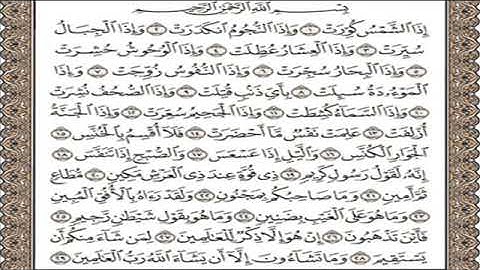 بِسْمِ اللَّهِ الرَّحْمَٰنِ الرَّحِيمِ
إِذَا الشَّمْسُ كُوِّرَتْ ١ وَإِذَا النُّجُومُ انكَدَرَتْ ٢ وَإِذَا الْجِبَالُ
سُيِّرَتْ ٣ وَإِذَا الْعِشَارُ عُطِّلَتْ ٤ وَإِذَا الْوُحُوشُ حُشِرَتْ
٥ وَإِذَا الْبِحَارُ سُجِّرَتْ ٦ وَإِذَا النُّفُوسُ زُوِّجَتْ ٧ وَإِذَا
الْمَوْءُۥدَةُ سُئِلَتْ ٨ بِأَيِّ ذَنۢبٍ قُتِلَتْ ٩ وَإِذَا الصُّحُفُ نُشِرَتْ
١٠ وَإِذَا السَّمَاءُ كُشِطَتْ ١١ وَإِذَا الْجَحِيمُ سُعِّرَتْ ١٢ وَإِذَا الْجَنَّةُ
أُزْلِفَتْ ١٣ عَلِمَتْ نَفْسٌ مَّا أَحْضَرَتْ ١٤ فَلَا أُقْسِمُ بِالْخُنَّسِ ١٥
الْجَوَارِ الْكُنَّسِ ١٦ وَاللَّيْلِ إِذَا عَسْعَسَ ١٧ وَالصُّبْحِ إِذَا تَنَفَّسَ ١٨
إِنَّهُۥ لَقَوْلُ رَسُولٍ كَرِيمٍ ١٩ ذِي قُوَّةٍ عِندَ ذِي الْعَرْشِ مَكِينٍ ٢٠ مُّطَاعٍ
ثَمَّ أَمِينٍ ٢١ وَمَا صَاحِبُكُم بِمَجْنُونٍ ٢٢ وَلَقَدْ رَءَاهُ بِالْأُفُقِ الْمُبِينِ
٢٣ وَمَا هُوَ عَلَى الْغَيْبِ بِضَنِينٍ ٢٤ وَمَا هُوَ بِقَوْلِ شَيْطَٰنٍ رَّجِيمٍ ٢٥
فَأَيْنَ تَذْهَبُونَ ٢٦ إِنْ هُوَ إِلَّا ذِكْرٌ لِّلْعَٰلَمِينَ ٢٧ لِمَن شَاءَ مِنكُمْ أَن
يَسْتَقِيمَ ٢٨ وَمَا تَشَاءُونَ إِلَّا أَن يَشَاءَ اللَّهُ رَبُّ الْعَٰلَمِينَ ٢٩